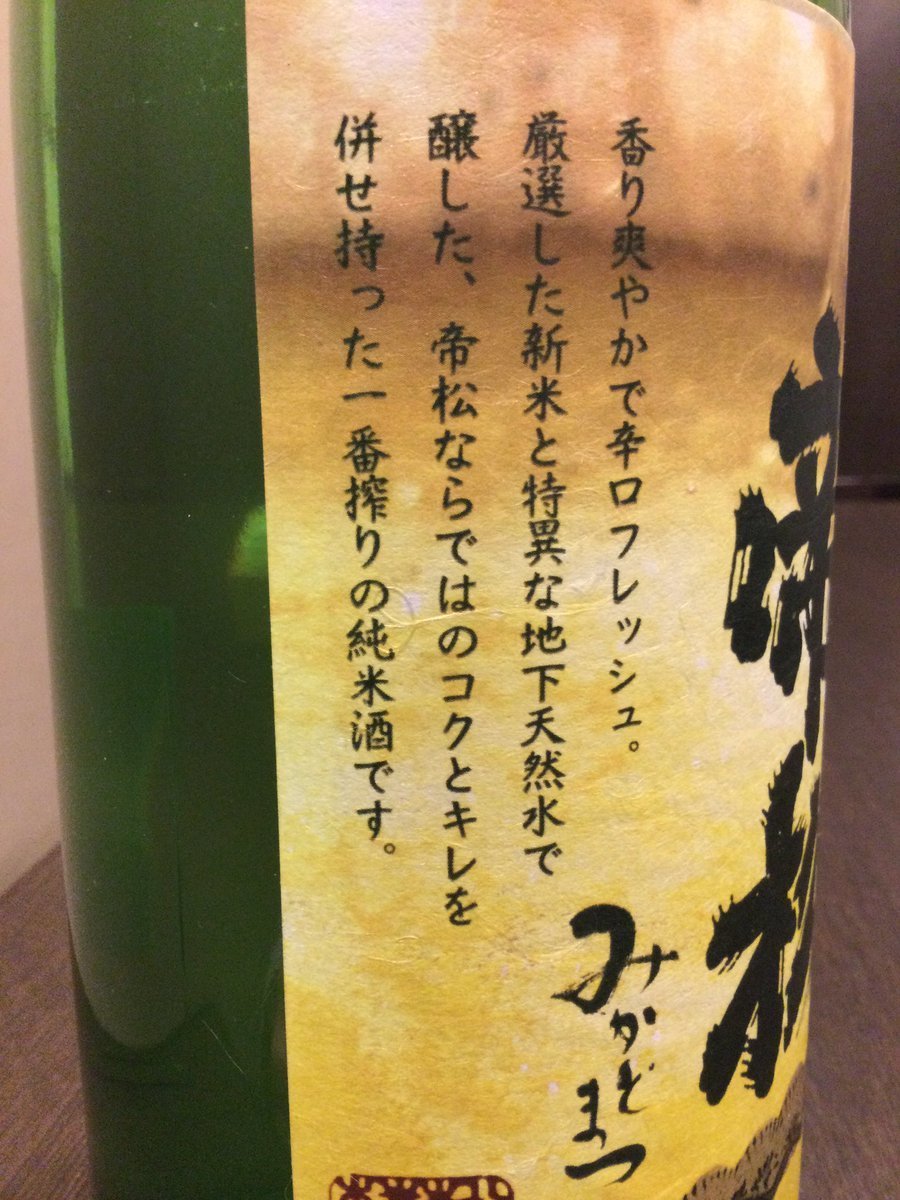 香り爽やかで辛口フレッシュ。
厳選した新米と特異な地下天然水で
醸した、帝松ならではのコクとキレを
併せ持った一番搾りの純米酒です。
みかどまつ